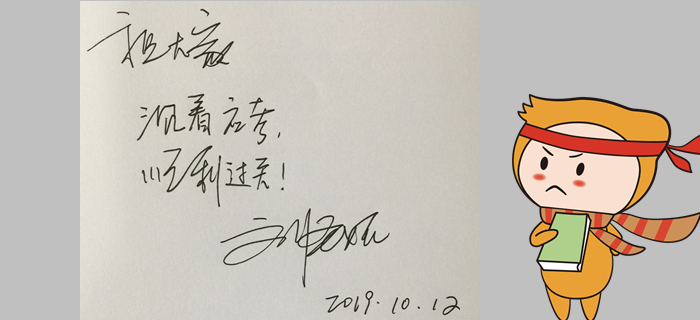 祝大家
沉着应考，
顺利过关！
2019.10.12